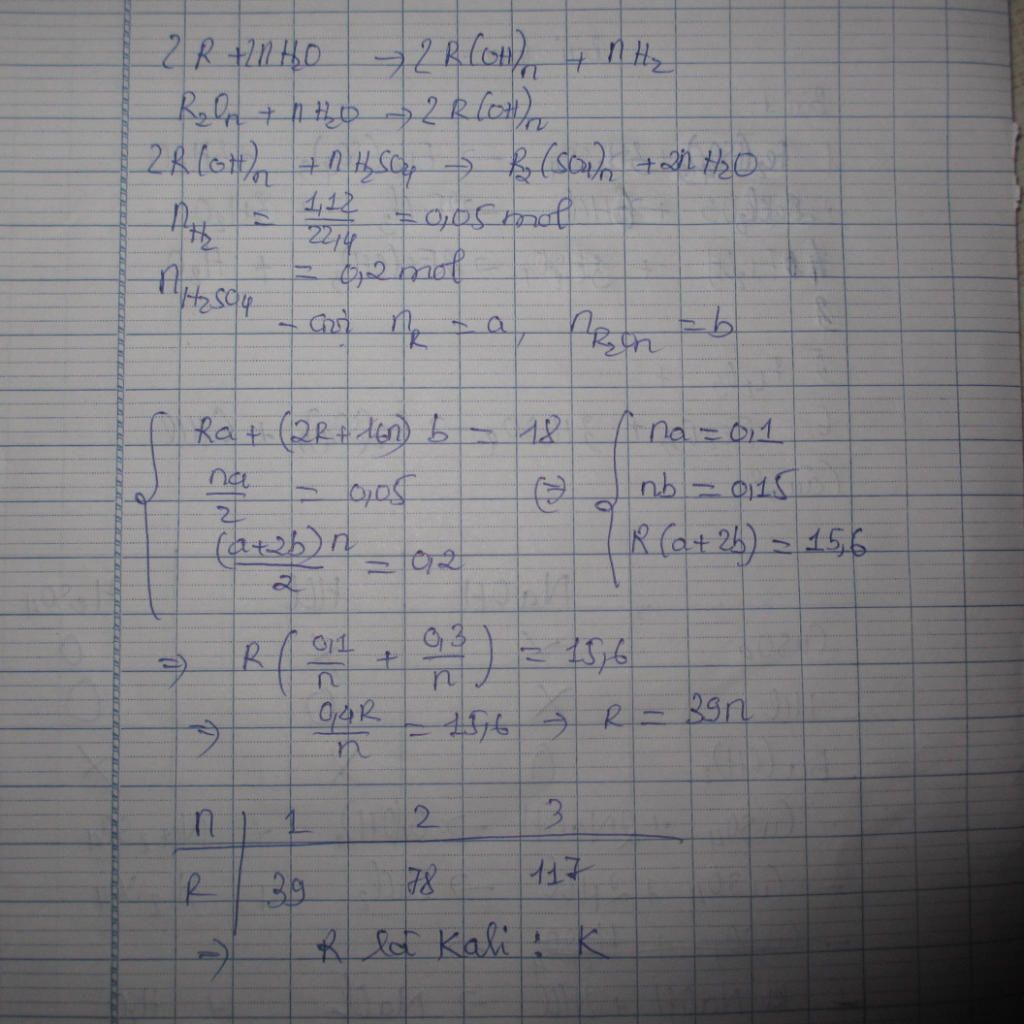 2R + 2nH₂O → 2R(OH)ₙ + nH₂
R₂Oₙ + nH₂O → 2R(OH)ₙ
2R(OH)ₙ + nH₂SO₄ → R₂(SO₄)ₙ + 2nH₂O
n_H₂ = 1,12/22,4 = 0,05 mol
n_H₂SO₄ = 0,2 mol
- Gọi n_R = a, n_R₂Oₙ = b
{ Ra + (2R+16n) b = 18 { na = 0,1
na/2 = 0,05 (=) nb = 0,15
(a+2b)n/2 = 0,2 R(a+2b) = 15,6
=> R(0,1/n + 0,3/n) = 15,6
=> 0,4R/n = 15,6 → R = 39n
n | 1 2 3
R | 39 78 117
=> R là Kali : K